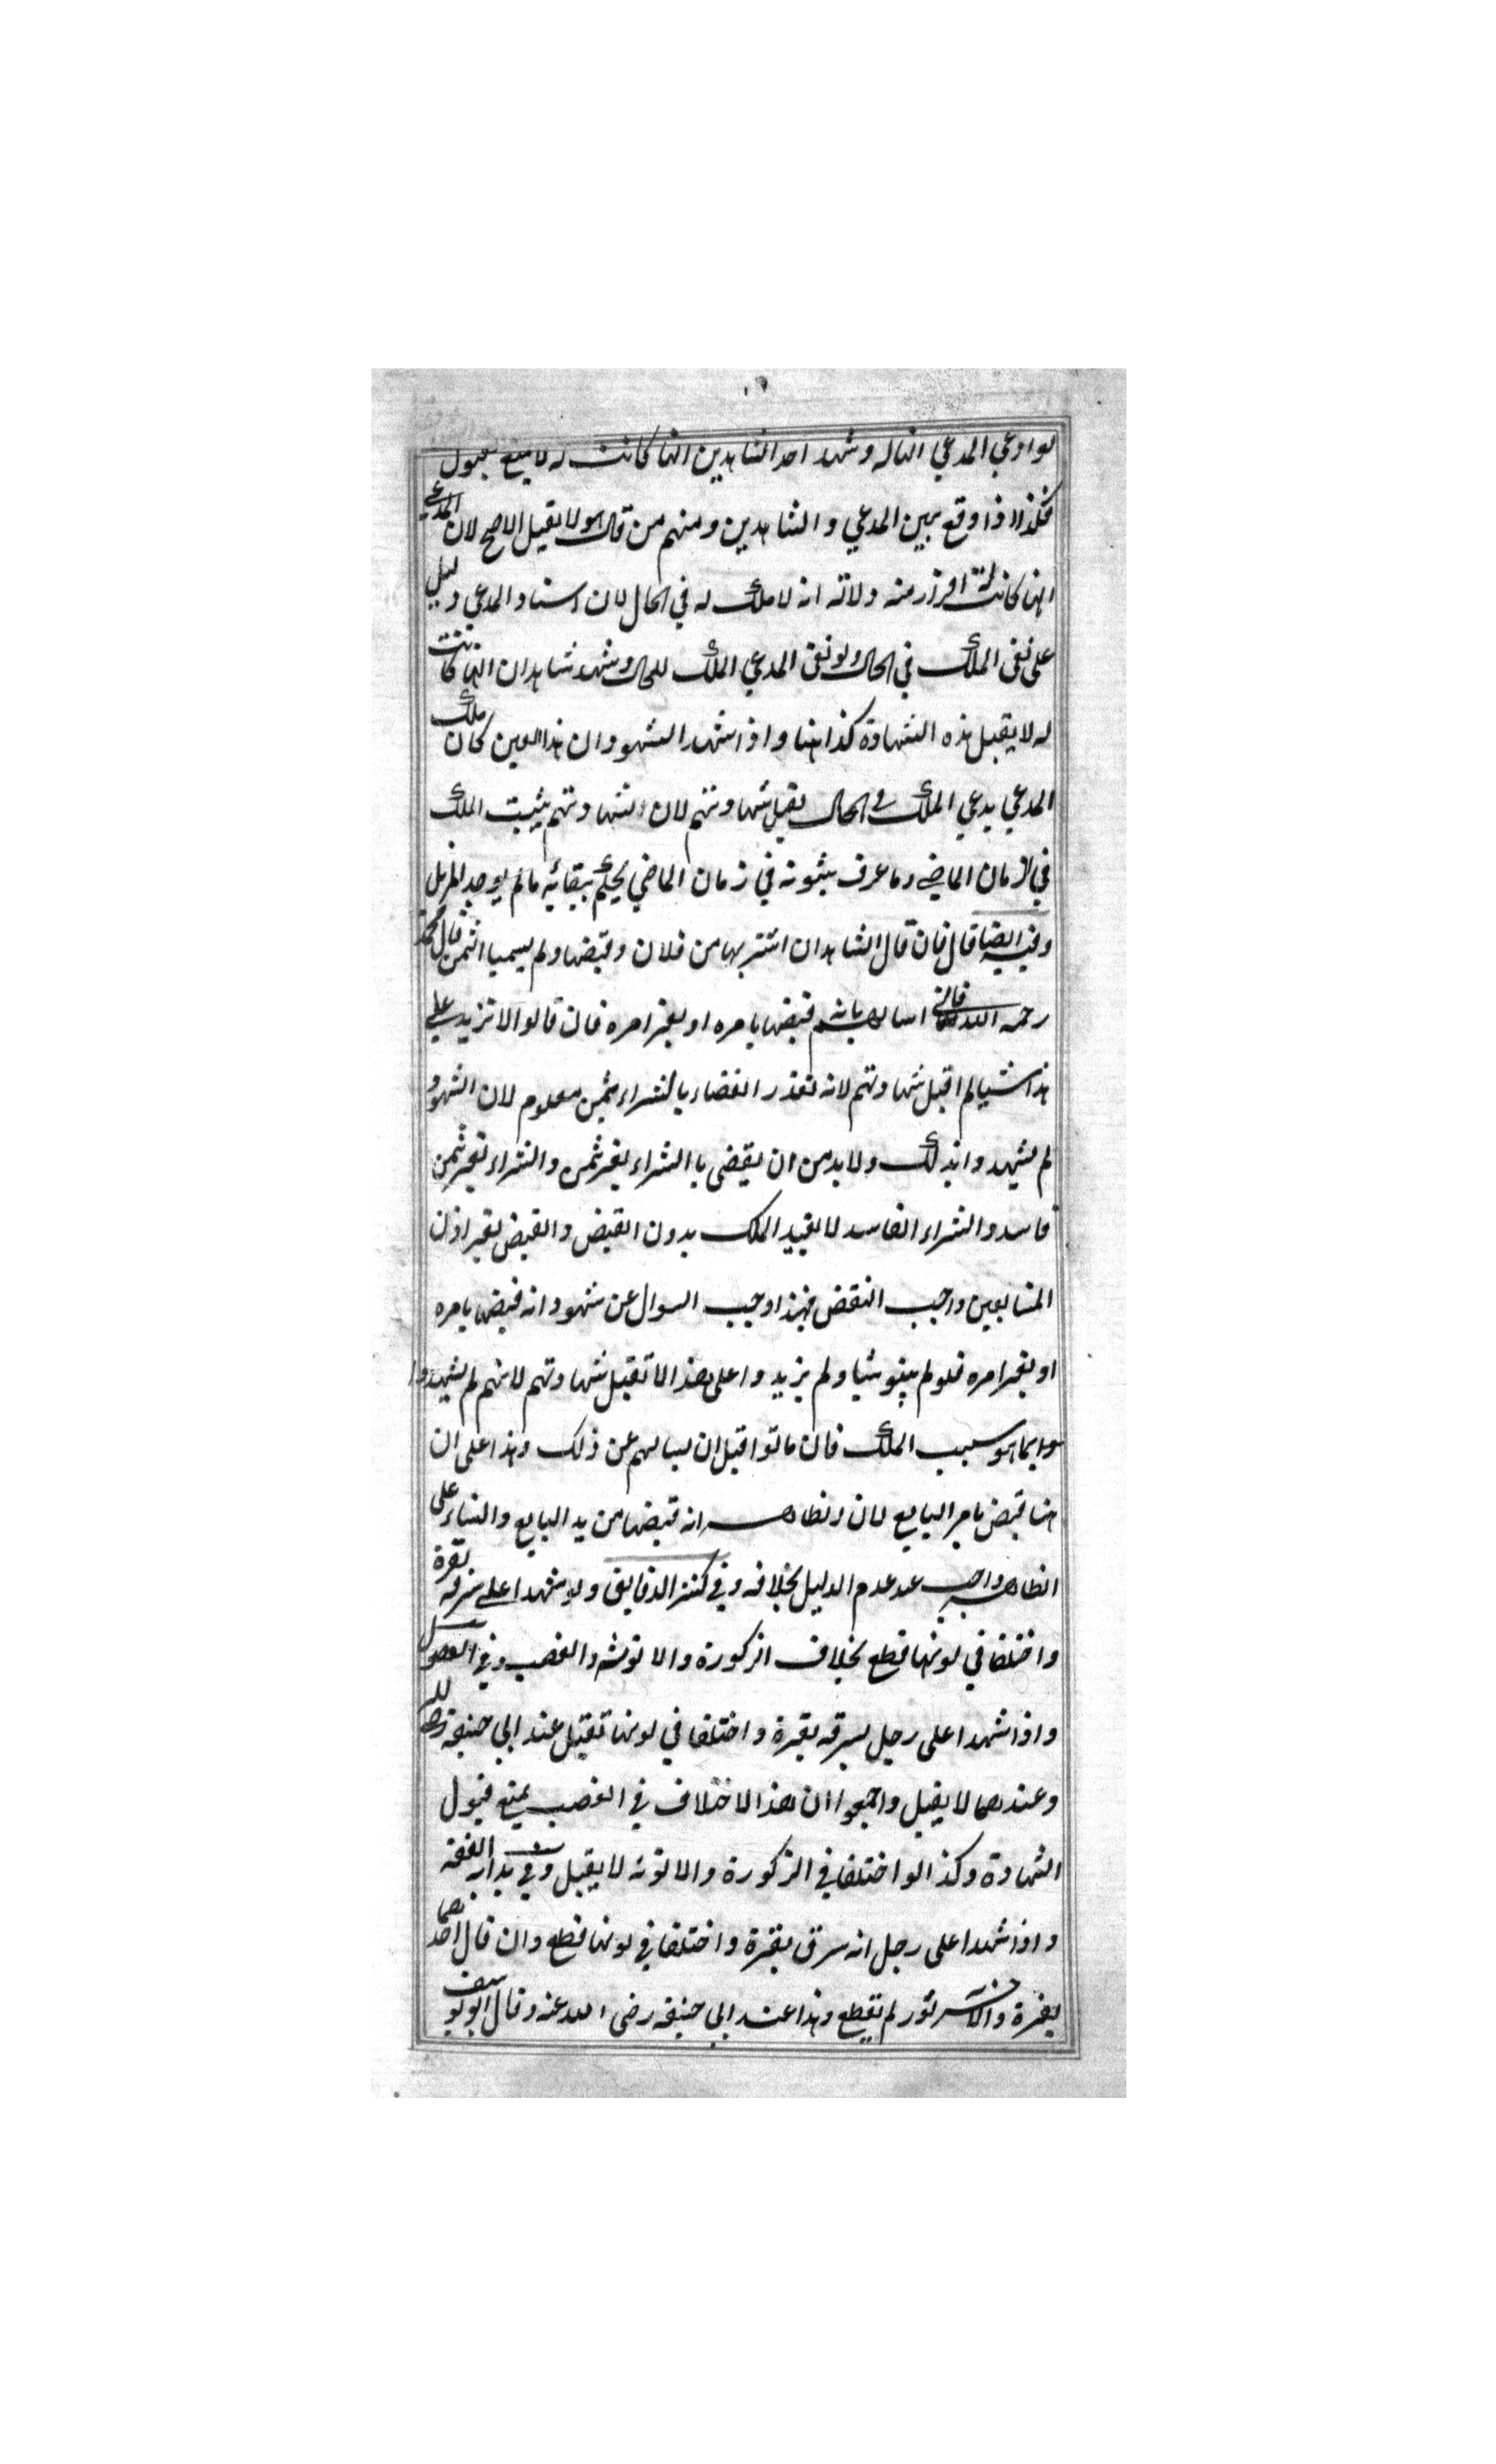 لو ادعي المدعي انها له وشهد احد الشاهدين انها كانت له لا يمنع قبول
فكذا اذا وقع بين المدعي والشاهدين ومنهم من قال هو لا يقبل الاصح لان المدعي
انها كانت له اقرار منه دلالة انه لا ملك له في الحال لان اسناد المدعي دليل
على نفى الملك في الحال ولو نفى المدعي الملك للحال وشهد شاهدان انها كانت
له لا يقبل هذه الشهادة كذا هنا واذا شهد الشهود ان هذا العين كان ملك
المدعي يدعي الملك في الحال يقبل شهادتهم لان شهادتهم يثبت الملك
في الزمان الماضي وما عرف بثبوته في زمان الماضي يحكم ببقائه ما لم يوجد المزيل
وفيه ايضا قال فان قال الشاهدان اشتريها من فلان وقبضها ولم يسميا الثمن قال محمد
رحمه الله فاني اسالها بانه قبضها بامره او بغير امره فان قالوا لا نزيد علي
هذا شيا لم اقبل شهادتهم لانه تعذر القضاء بالشراء بثمن معلوم لان الشهود
لم يشهدوا بذلك ولا بد من ان يقضى با الشراء بغير ثمن والشراء بغير ثمن
فاسد والشراء الفاسد لا يفيد الملك بدون القبض والقبض بغير اذن
المتبايعين واجب النقض فهذا وجب السوال عن شهود انه قبضها بامره
او بغير امره فلو لم يبنو شيا ولم يزيدوا على هذا لا تقبل شهادتهم لانهم لم يشهدوا
بما هو سبب الملك فان ماتوا قبل ان يسالهم عن ذلك وهذا على ان
هنا قبض بامر البايع لان الظاهر انه قبضها من يد البايع والبناء على
الظاهر واجب عند عدم الدليل بخلافه وفي كنز الدقايق ولو شهدا على سرقه بقرة
واختلفا في لونها قطع بخلاف الذكورة والانوثه والغصب وفي الفصول
واذا شهدا على رجل بسرقه بقرة واختلفا في لونها تقبل عند ابي حنيفة رحمه الله
وعندهما لا يقبل واجمعوا ان هذا الاختلاف في الغصب يمنع قبول
الشهادة وكذا لو اختلفا في الذكورة والانوثة لا يقبل وفي هداية الفقه
واذا شهدا على رجل انه سرق بقرة واختلفا في لونها قطع وان قال احدهما
بقرة والاخر ثور لم يقطع وهذا عند ابي حنيفه رضى الله عنه وقال ابو يوسف